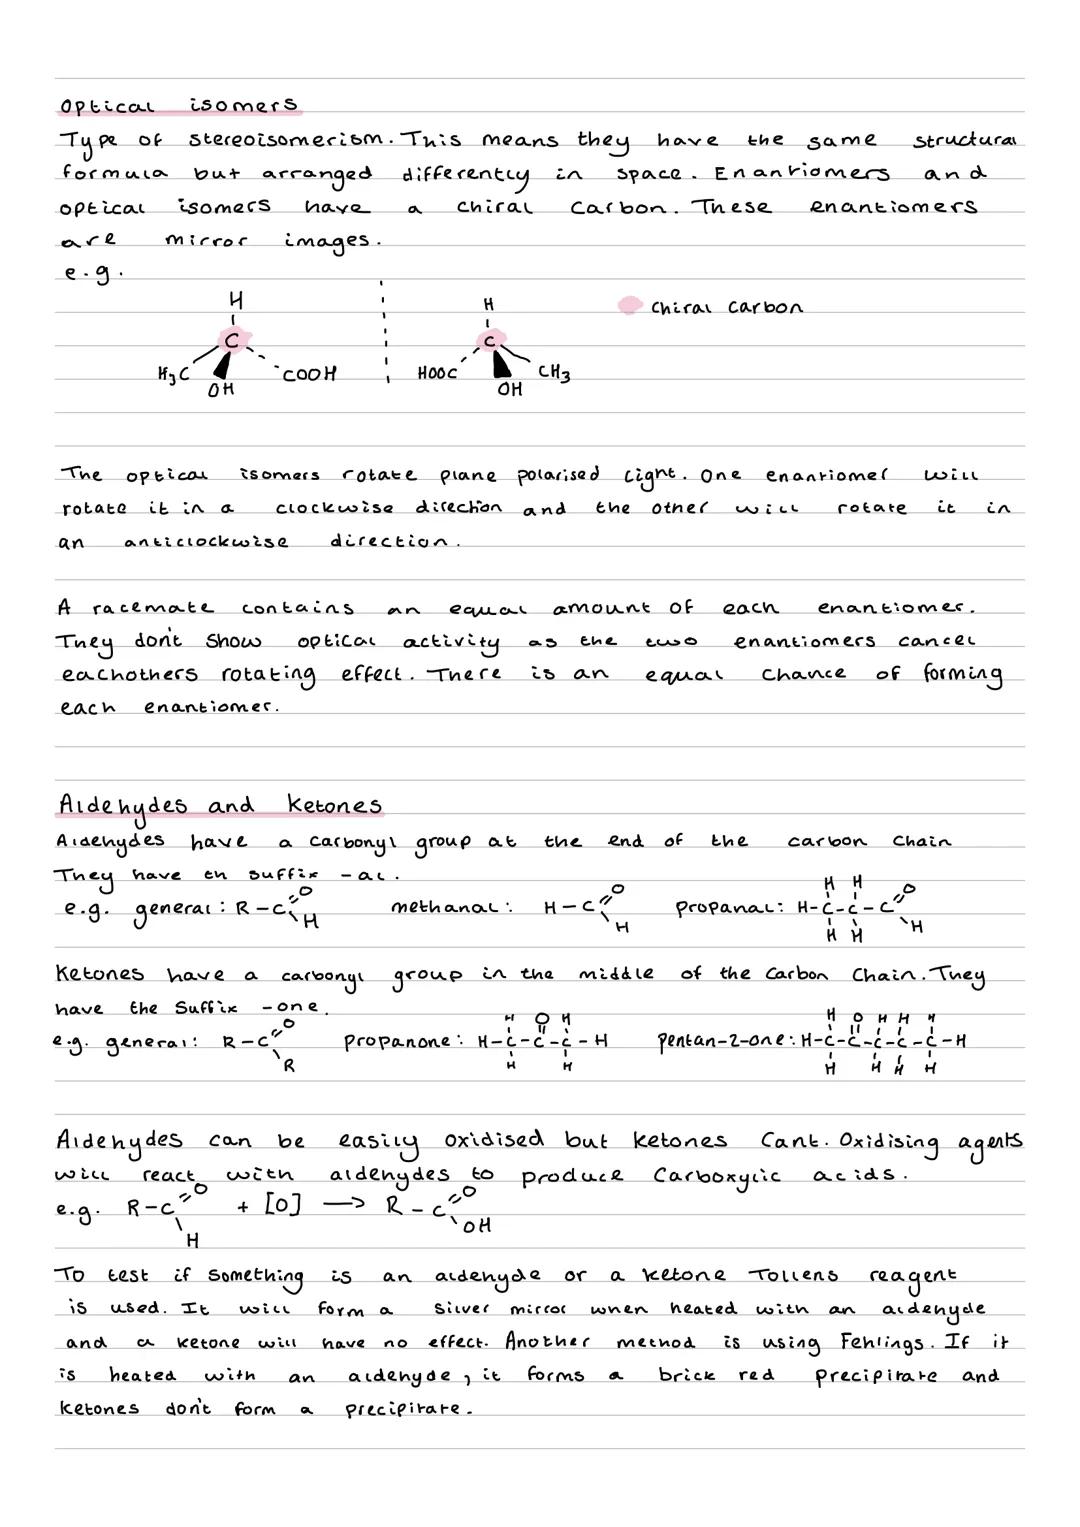 Optical isomers
Type of stereoisomerism. This means they have the same structural
formula but arranged differently in space. Enantiomers and
optical isomers have a chiral carbon. These enantiomers
are mirror images.
e.g.
H H Chiral Carbon
C C
H3C OH COOH HOOC OH CH3
The optical isomers rotate plane polarised light. One enantiomer will
rotate it in a clockwise direction and the other will rotate it in
an anticlockwise direction.
A racemate contains an equal amount of each enantiomer.
They don't show optical activity as the two enantiomers cancel
eachothers rotating effect. There is an equal chance of forming
each enantiomer.
Aldehydes and ketones
Aldehydes have a carbonyl group at the end of the carbon chain
They have th suffix -al.
H H
e.g. general: R-C=O methanal: H-C=O propanal: H-C-C-C=O
H H H
H H
Ketones have a carbonyl group in the middle of the carbon chain. They
have the suffix -one.
O H O H H O H H H
e.g. general: R-C propanone: H-C-C-C-H pentan-2-one: H-C-C-C-C-C-H
R H H H H H H
Aldehydes can be easily oxidised but ketones cant. Oxidising agents
will react with aldehydes to produce carboxylic acids.
e.g. R-C=O + [O] → R-C=O
H OH
To test if something is an aldehyde or a ketone Tollens reagent
is used. It will form a silver mirror when heated with an aldehyde
and a ketone will have no effect. Another method is using Fehlings. If it
is heated with an aldehyde, it forms a brick red precipitate and
ketones don't form a precipitate.